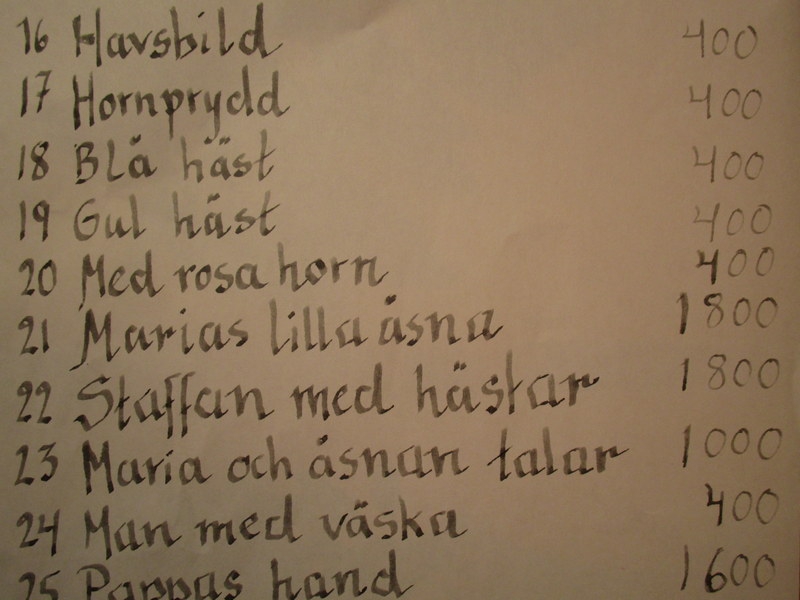 16 Havsbild 400
17 Hornprydd 400
18 Blå häst 400
19 Gul häst 400
20 Med rosa horn 400
21 Marias lilla åsna 1800
22 Staffan med hästar 1800
23 Maria och åsnan talar 1000
24 Man med väska 400
25 Pappas hand 1600